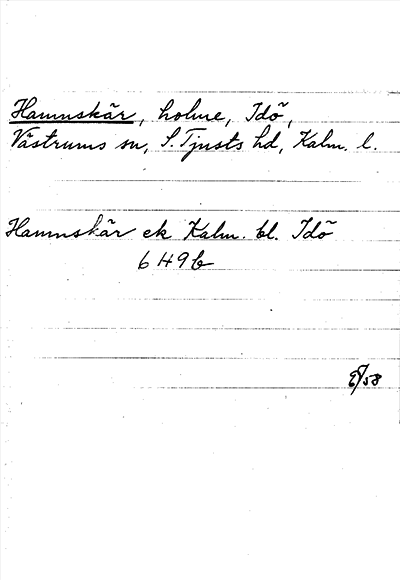 Hamnskär, holme, Idö,
Västrums sn, S. Tjusts hd, Kalm. l.
Hamnskär ek Kalm. bl. Idö
649b
/58